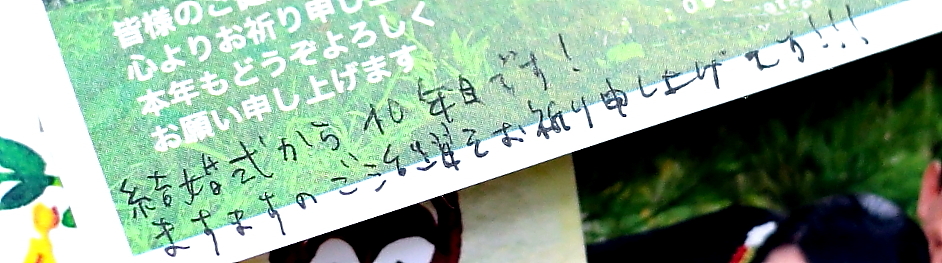 皆様のご
心よりお祈り申し上
本年もどうぞよろしく
お願い申し上げます
結婚式から10年目です!
ますますのご活躍をお祈り申し上げます!!!